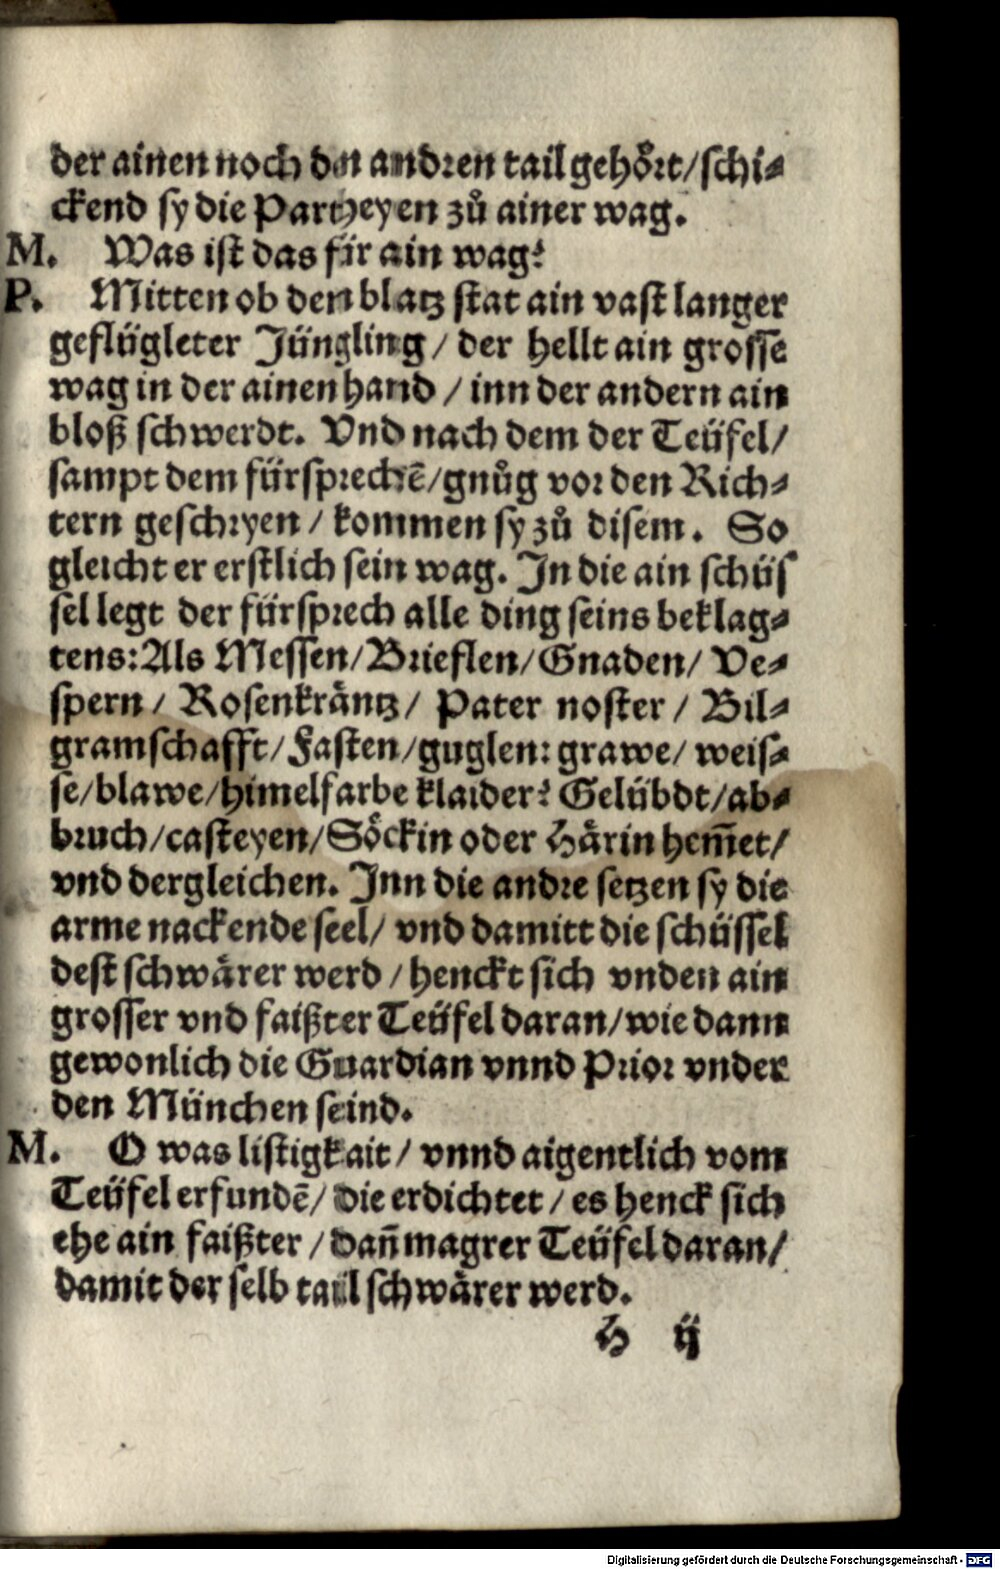 der ainen noch den andren tail gehoͤrt/schi-
ckend sy die Partheyen zuͦ ainer wag.
M. Was ist das für ain wag?
P. Mitten ob dem blatz stat ain vast langer
geflügleter Jüngling/ der hellt ain grosse
wag in der ainen hand / inn der andern ain
bloß schwerdt. Vnd nach dem der Teüfel/
sampt dem fürsprechẽ/gnuͦg vor den Rich-
tern geschryen / kommen sy zuͦ disem. So
gleicht er erstlich sein wag. In die ain schüs
sel legt der fürsprech alle ding seins beklag-
tens: Als Messen/Brieflen/Gnaden/ Ve-
spern / Rosenkraͤntz/ Pater noster / Bil-
gramschafft/Fasten/guglen: grawe/ weis-
se/blawe/himelfarbe klaider? Gelübdt/ab-
bruch/casteyen/Soͤckin oder Haͤrin hem̃et/
vnd dergleichen. Inn die andre setzen sy die
arme nackende seel/ vnd damitt die schüssel
dest schwaͤrer werd / henckt sich vnden ain
grosser vnd faißter Teüfel daran/wie dann
gewonlich die Guardian vnnd Prior vnder
den München seind.
M. O was listigkait/ vnnd aigentlich vom
Teüfel erfundẽ/ die erdichtet / es henck sich
ehe ain faißter / dañ magrer Teüfel daran/
damit der selb tail schwaͤrer werd.
H ij
Digitalisierung gefördert durch die Deutsche Forschungsgemeinschaft - DFG